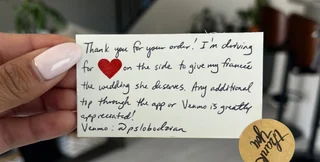 Thank you for your order! I'm driving
for on the side to give my francée
the wedding she deserves. Any additional
tip through the app or Venmo is greatly
appreciated!
Venmo: @pslobodzean
thank
you